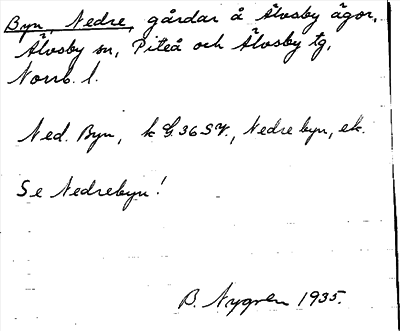 Byn, Nedre, gårdar å Älvsby ägor,
Älvsby sn, Piteå och Älvsby tg,
Norrb. l.
Ned. Byn, k G.36 SV., Nedre byn, ek.
Se Nedrebyn!
B. Nygren 1935.